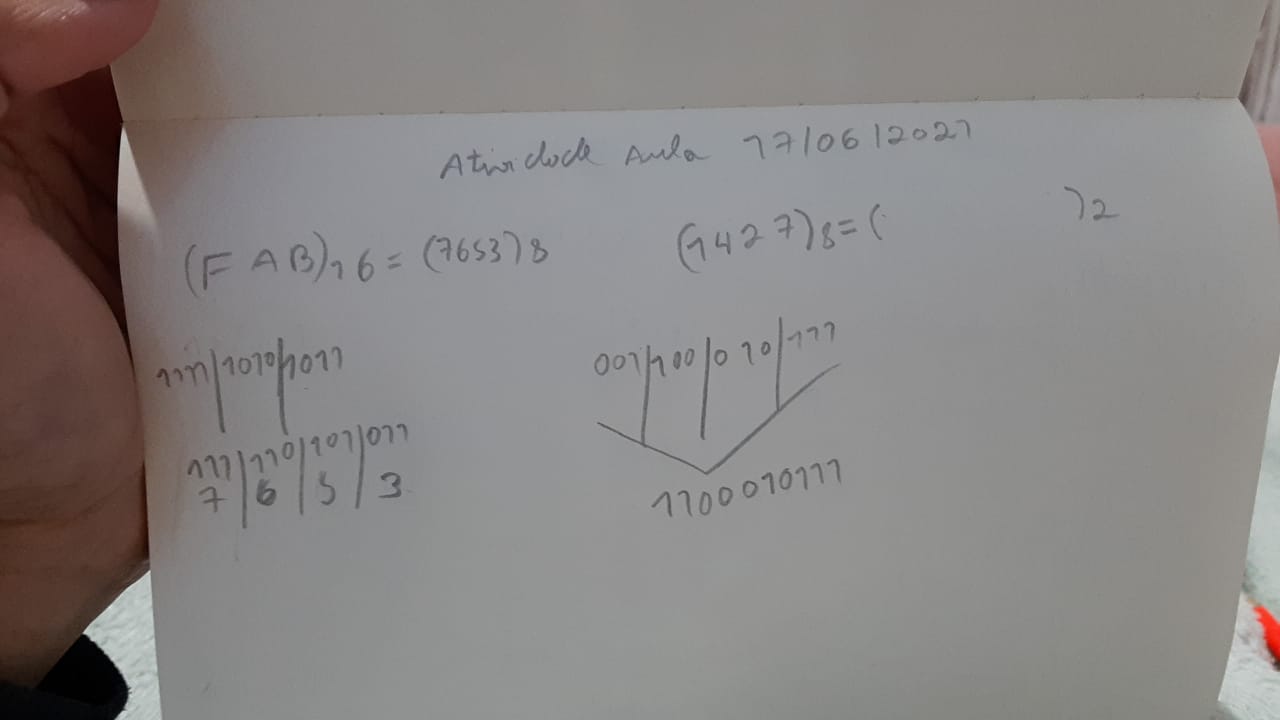 Atividade Aula 17/06/2021
(FAB)16 = (7653)8
(1427)8 = ( )2
1111|1010|1011
001|100|010|111
111|110|101|011
7|6|5|3
1100010111